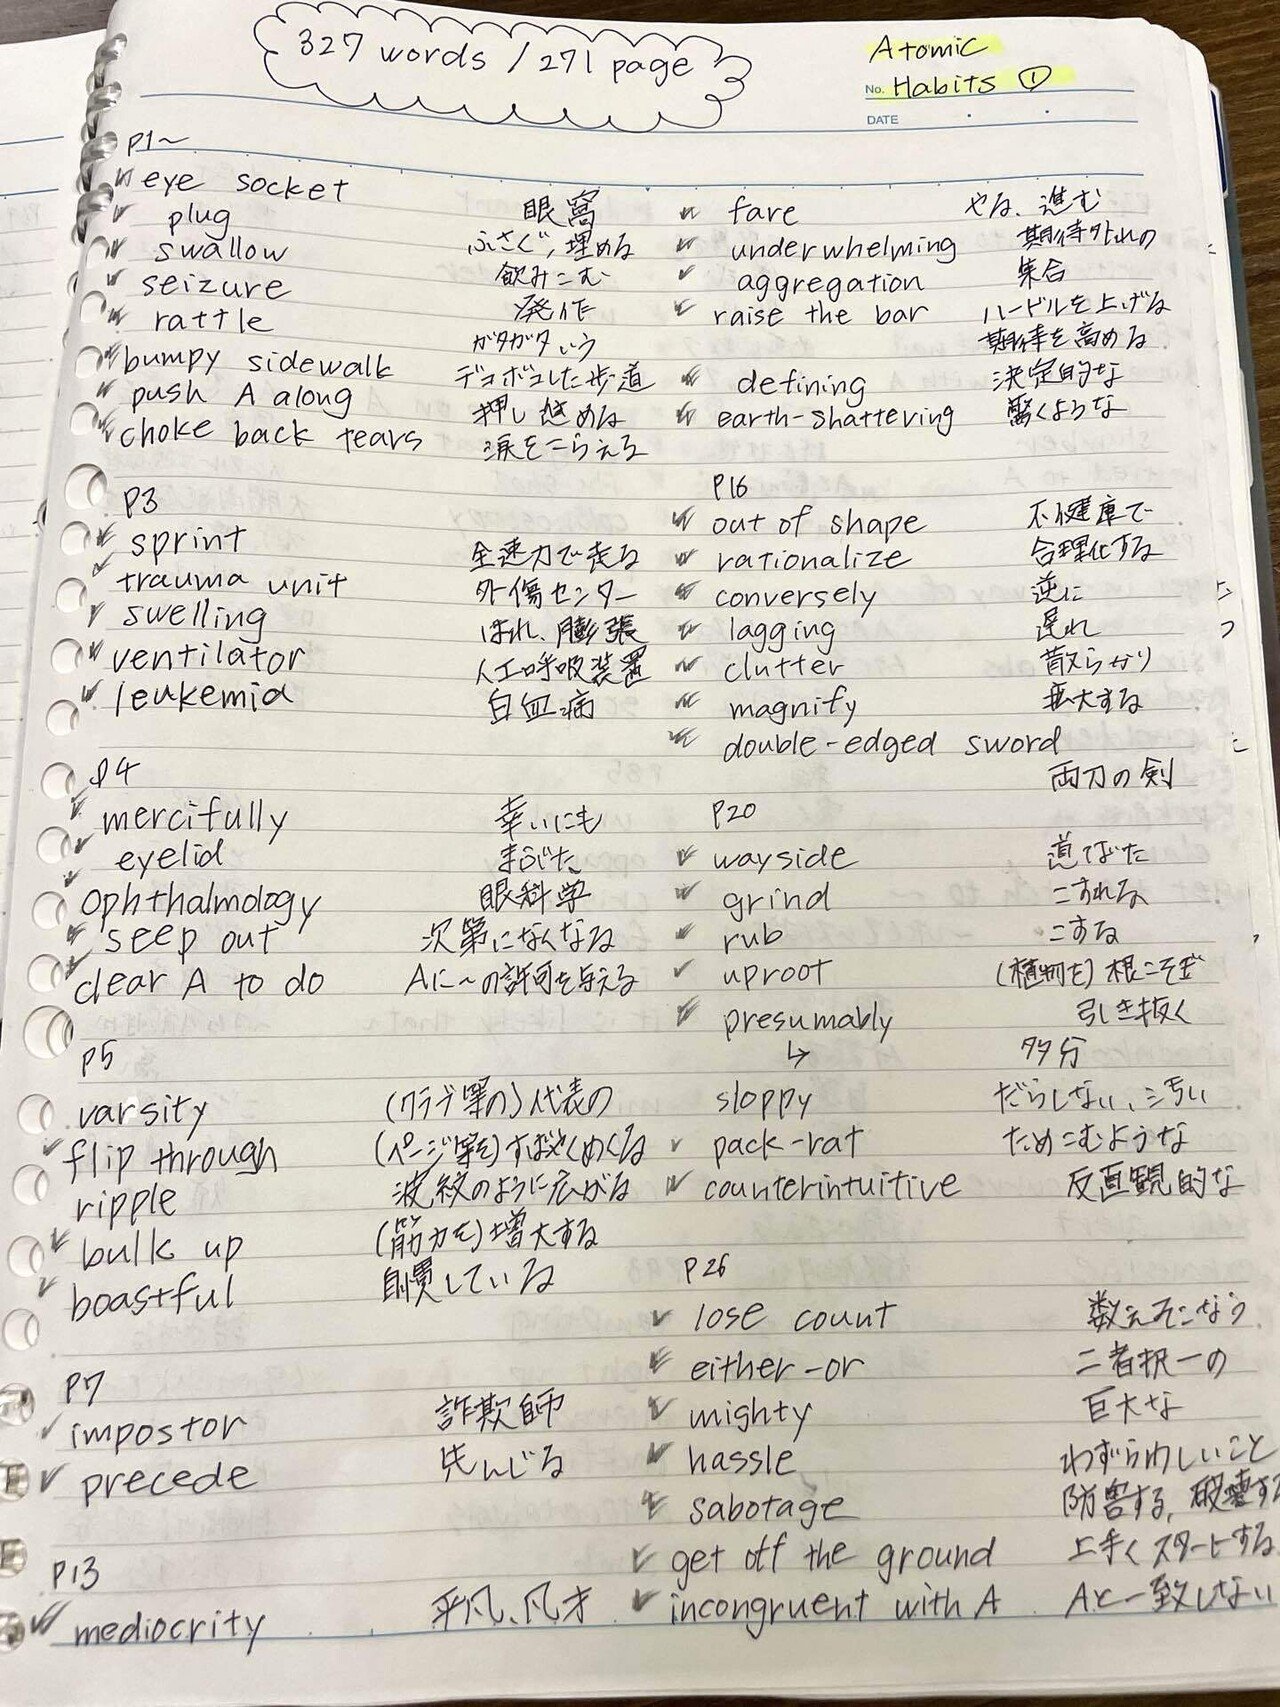 327 words / 271 page
Atomic
No. Habits ①
DATE
P1~
eye socket 眼窩
plug ふさぐ、埋める
swallow 飲みこむ
seizure 発作
rattle ガタガタいう
bumpy sidewalk デコボコした歩道
push A along 押し進める
choke back tears 涙をこらえる
P3
sprint 全速力で走る
trauma unit 外傷センター
swelling はれ、膨張
ventilator 人工呼吸装置
leukemia 白血病
P4
mercifully 幸いにも
eyelid まぶた
ophthalmology 眼科学
seep out 次第になくなる
clear A to do Aに~の許可を与える
P5
varsity (クラブ等の)代表の
flip through (ページ等を)すばやくめくる
ripple 波紋のように広がる
bulk up (筋力を)増大する
boastful 自慢している
P7
impostor 詐欺師
precede 先んじる
P13
mediocrity 平凡、凡才
fare やる、進む
underwhelming 期待外れの
aggregation 集合
raise the bar ハードルを上げる
期待を高める
defining 決定的な
earth-shattering 驚くような
P16
out of shape 不健康で
rationalize 合理化する
conversely 逆に
lagging 遅れ
clutter 散らかり
magnify 拡大する
double-edged sword
両刀の剣
P20
wayside 道ばた
grind こすれる
rub こする
uproot (植物を)根こそぎ
引き抜く
presumably
↳ 多分
sloppy だらしない、汚い
pack-rat ためこむような
counterintuitive 反直観的な
P26
lose count 数えそこなう
either-or 二者択一の
mighty 巨大な
hassle わずらわしいこと
sabotage 防害する、破壊する
get off the ground 上手くスタートする
incongruent with A Aと一致しない